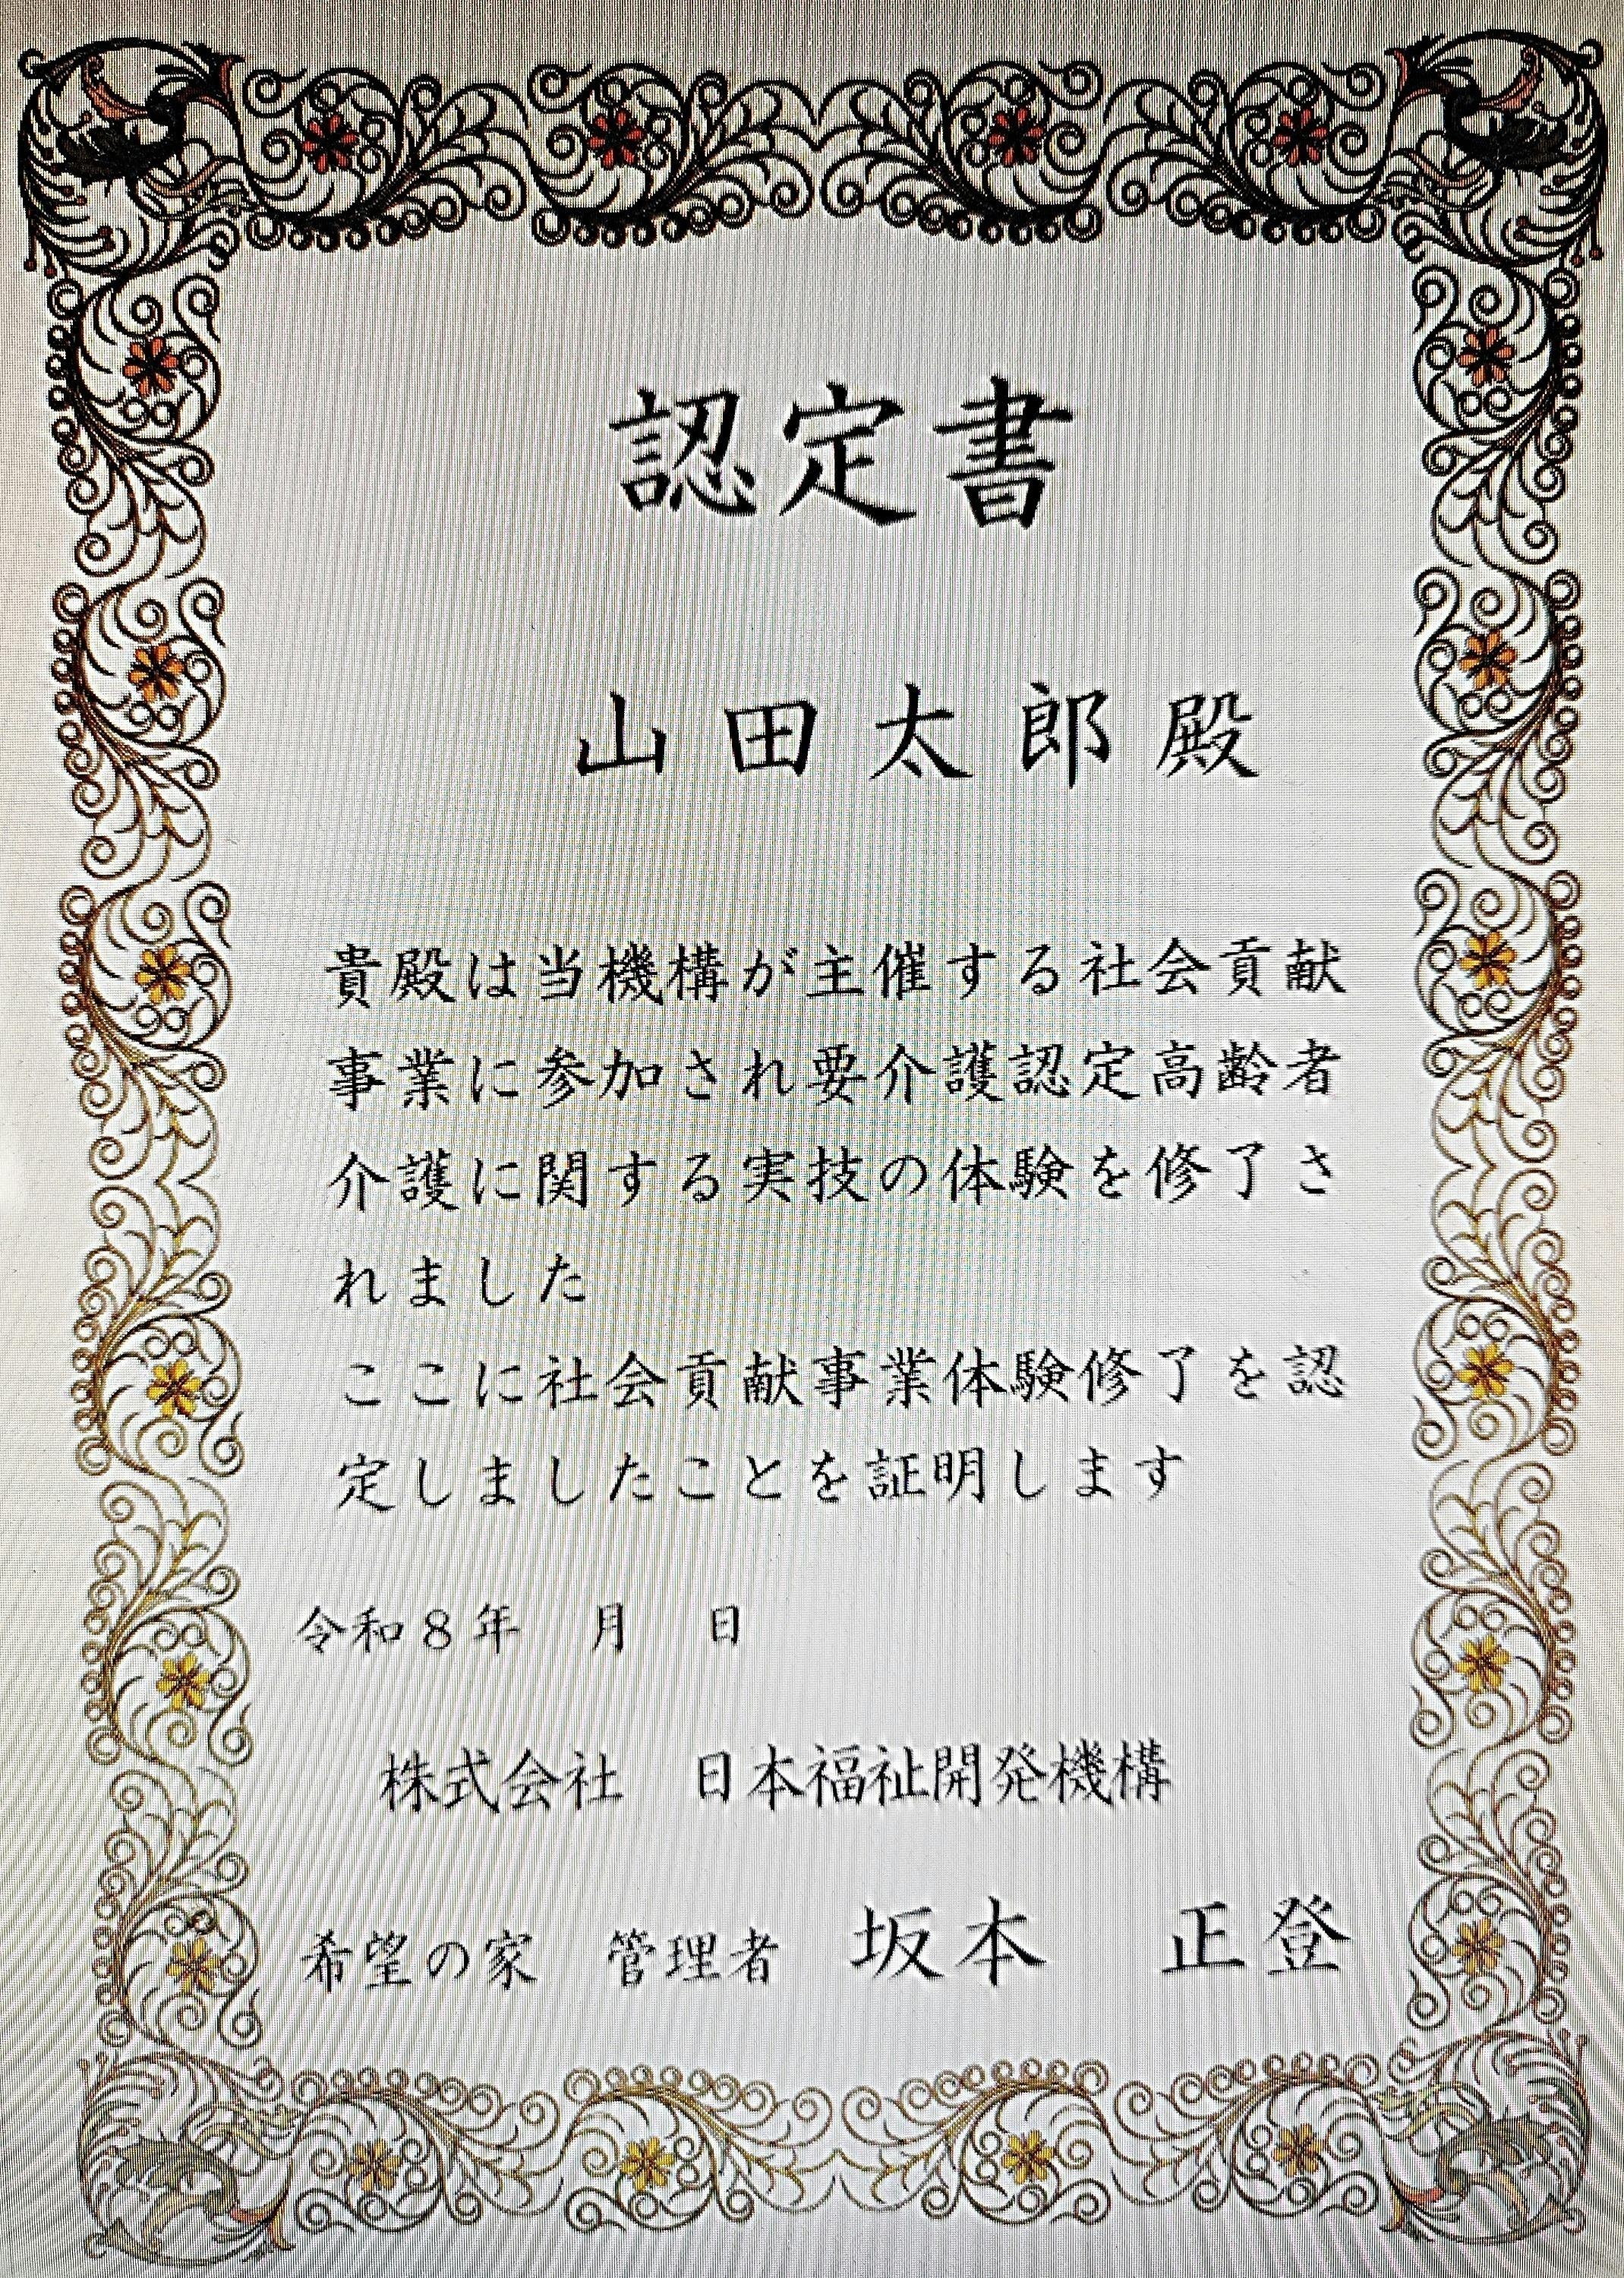 認定書
山田太郎殿
貴殿は当機構が主催する社会貢献
事業に参加され要介護認定高齢者
介護に関する実技の体験を修了さ
れました
ここに社会貢献事業体験修了を認
定しましたことを証明します
令和８年　月　日
株式会社　日本福祉開発機構
希望の家　管理者　坂本　正登